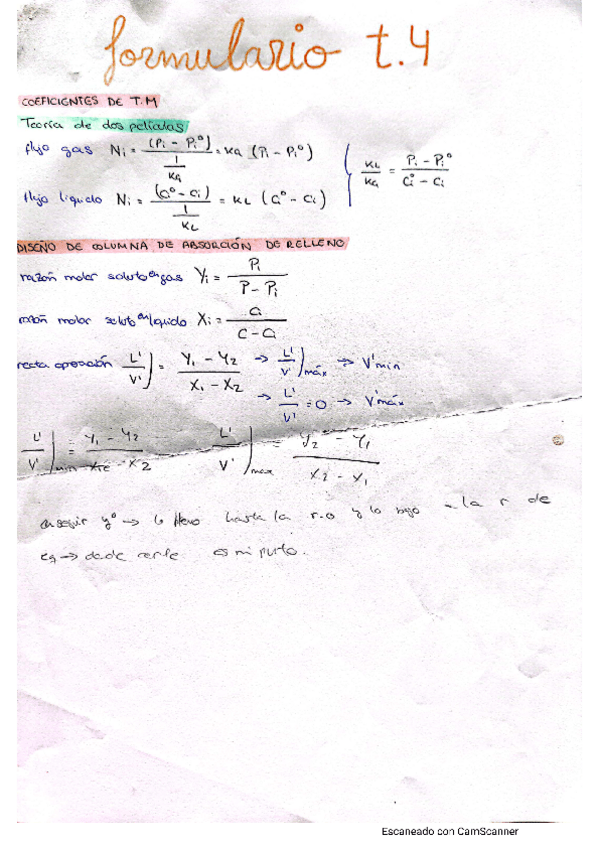 formulario t.4
COEFICIENTES DE T.M
Teoría de dos películas
flujo gas Ni = (Pi - Pi°) / (1/KG) = KG (Pi - Pi°) KL/KG = Pi - Pi° / Ci° - Ci
flujo líquido Ni = (Ci° - Ci) / (1/KL) = KL (Ci° - Ci)
DISEÑO DE COLUMNA DE ABSORCIÓN DE RELLENO
razón molar soluto en gas Yi = Pi / P - Pi
razón molar soluto en líquido Xi = Ci / C - Ci
recta operación L'/V') = Y1 - Y2 / X1 - X2 → L'/V')máx → V'min
→ L'/V' = 0 → V'máx
L'/V')min = Y1 - Y2 / X2 L'/V')max = Y2 - Y1 / X2 - X1
y° → lo llevo hasta la r.o y lo bajo a la r de
eq → donde corte es mi punto.
Escaneado con CamScanner